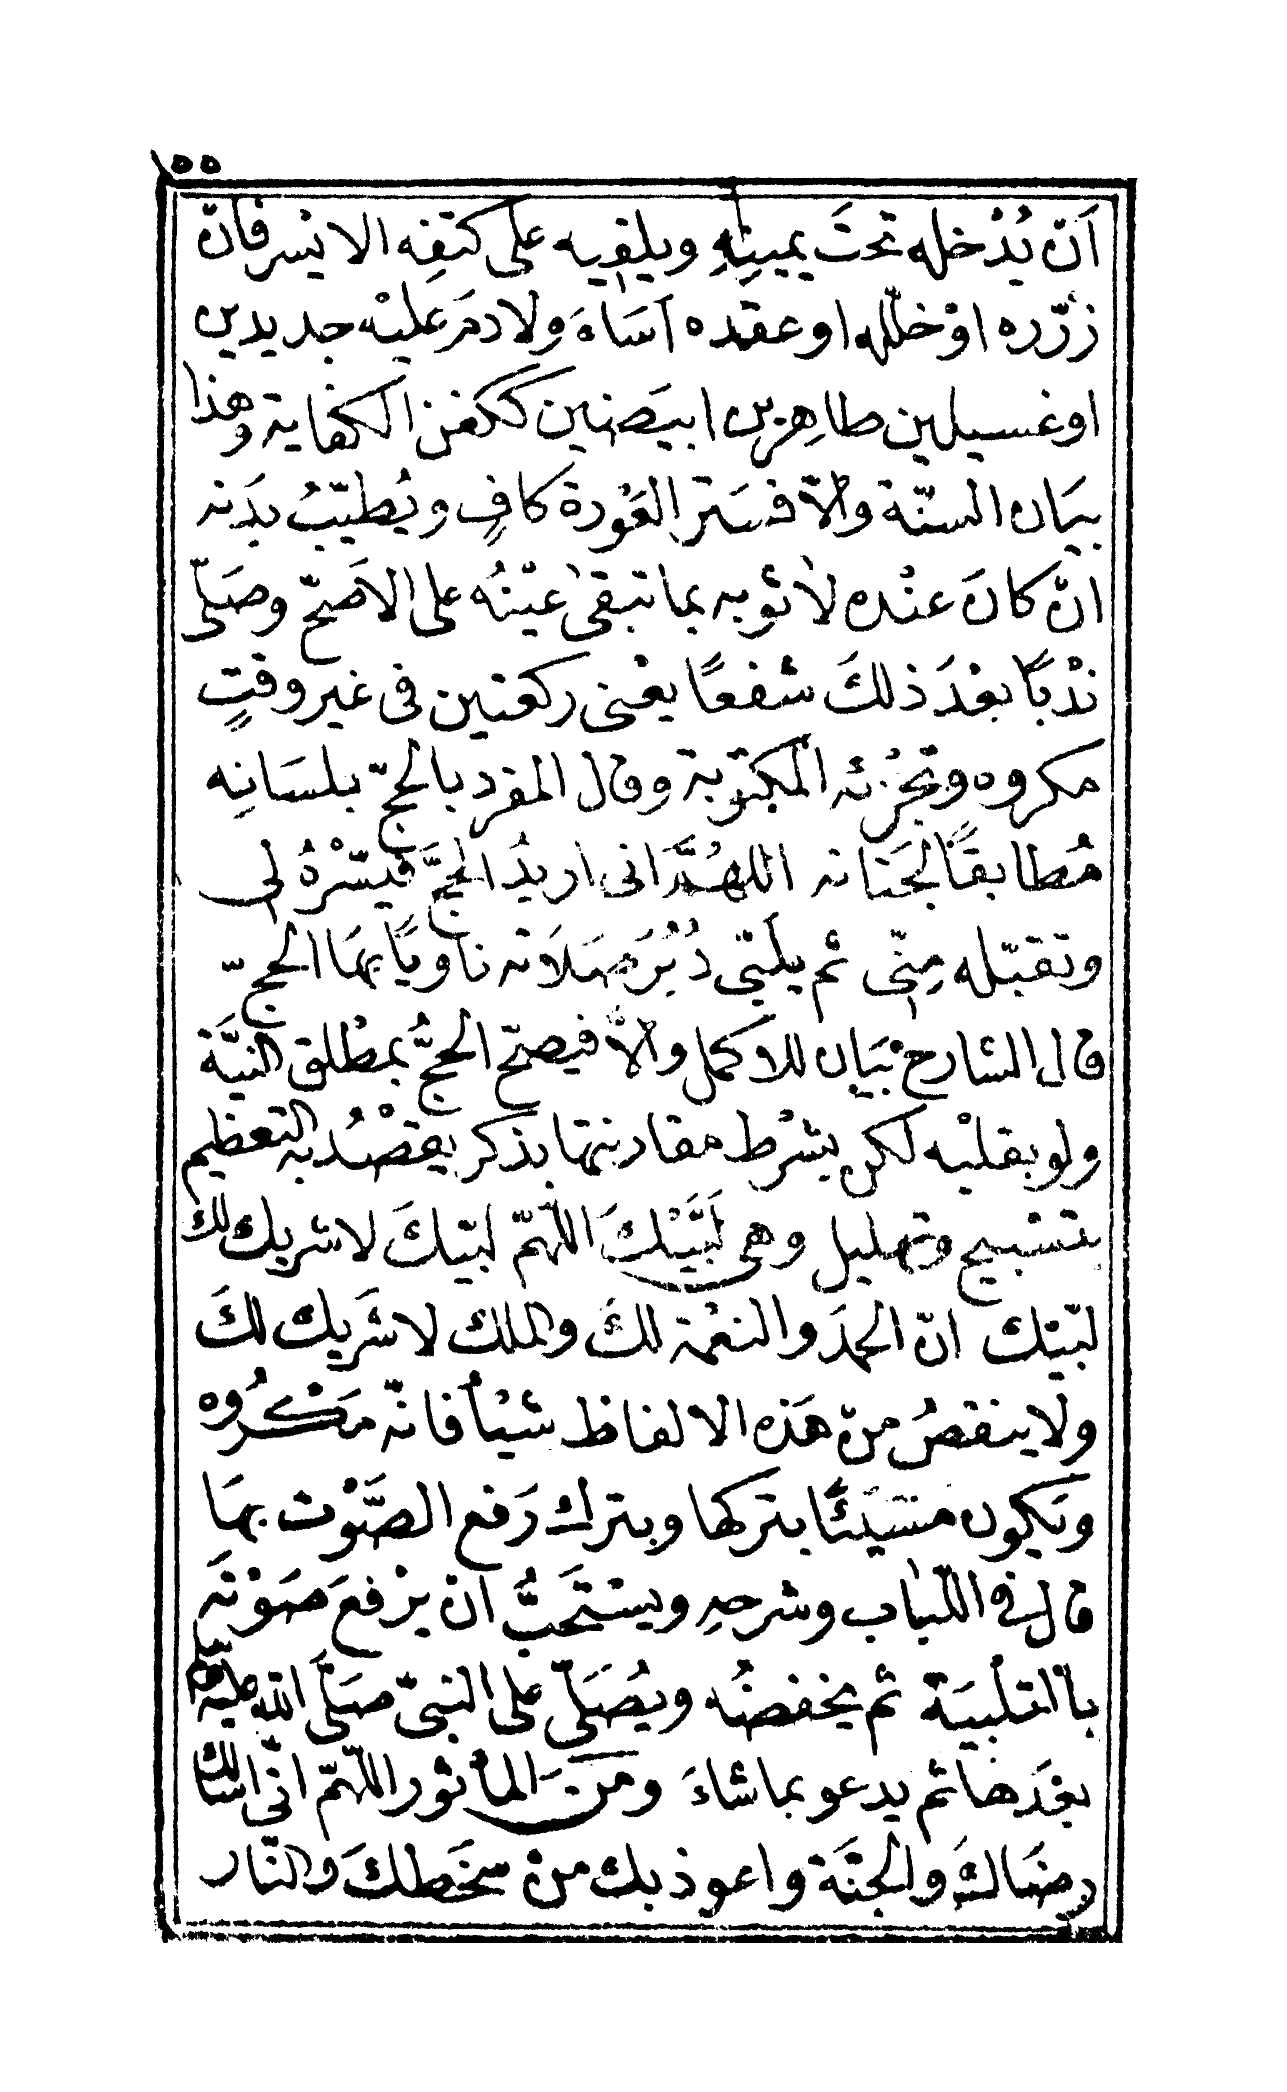 ١٥٥
اَنْ يُدْخله تحتَ يمينِهِ ويلقيه على كتفِه الايْسرفانْ
زرّره اوْ خلّله او عقده اَسَاءَ ولا دمَ عليْه جديدين
او غسيلين طاهرين ابيَضين ككفن الكفاية وهذا
بيَان السنّة والاّ فسَتر العَوْرة كافٍ ويُطيّبُ بدَنه
انْ كانَ عنْده لا ثوبه بما تبقى عيْنُه على الاَصَحّ وصَلّى
ندْبًا بعْدَ ذلكَ شفعًا يعْنى ركعتين فى غير وقتٍ
مكروه وتجْزئه المكتوبة وقال المفرد بالحجّ بلسَانِه
مُطابقًا لجَنانه اللهُمَّ انى اريدُ الحجَّ فيسّرْهُ لى
وتقبّله مِنّى ثم يلبّى دُبُرَ صَلاَته ناويًا بهَا الحجّ
قال الشارح بيَان للاكمل والاّ فيصحّ الحجُّ بمطْلق النيَّة
ولو بقلبْه لكن بشرْط مقارنتها بذكر يقصْدُ به التعظيم
بتسْبيح وتهليل وهى لَبَّيْكَ اللّهمّ لبّيْكَ لا شريك لك
لبّيْك انّ الحمدَ والنعْمة لكَ والملك لا شَريك لكَ
ولا ينقصُ منْ هَذه الالفاظ شيْأ فانّه مَكْرُوه
وَيكون مسَيئًا بتركها وبترك رَفع الصَّوْت بهَا
قال فى اللّباب وشرحهِ ويسْتَحبُّ انْ يرْفعَ صَوْتَه
باالتلْبيَة ثم يخفضُه ويُصَلّى على النبىّ صَلَّى الله عليْه وسلم
بعْدَها ثم يدعو بما شاءَ ومنَ المأثور اللّهمّ انّى اسالك
رضَاكَ والجنَّة واعوذ بك منْ سخَطكَ والنّار